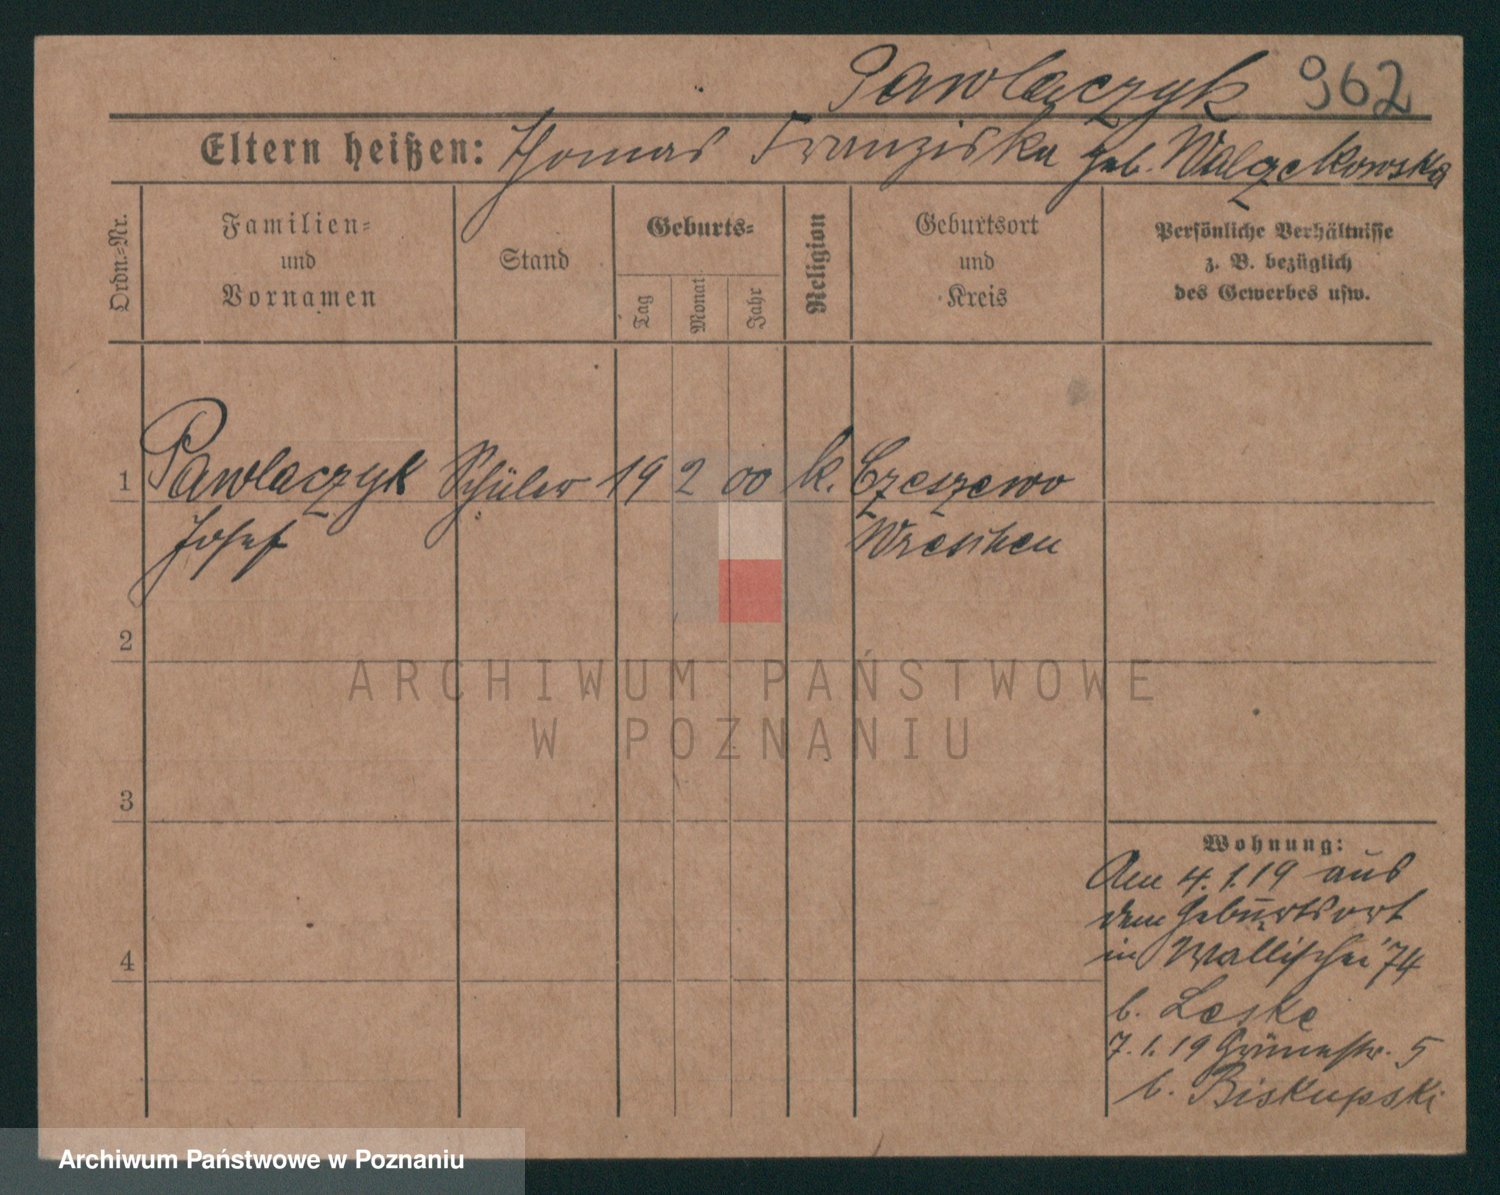 Pawlaczyk 962
Eltern heißen: Thomas Franziska geb. Walczakowska
Ordn.-Nr.
Familien-
und
Vornamen
Stand
Geburts-
Tag
Monat
Jahr
Religion
Geburtsort
und
Kreis
Persönliche Verhältnisse
z. B. bezüglich
des Gewerbes usw.
1 Pawlaczyk Schüler 19 2 00 k. Czeszewo
Josef Wreschen
2
ARCHIWUM PAŃSTWOWE
W POZNANIU
3
Wohnung:
Am 4.1.19 aus
dem Geburtsort
in Wallischei 74
4
b. Leske
7.1.19 Grünestr. 5
b. Biskupski
Archiwum Państwowe w Poznaniu